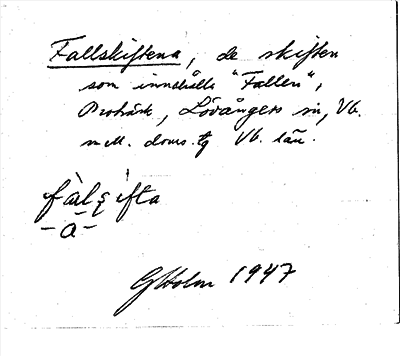 Fallskiftena, de skiften
som innehålla "Fallen",
Lövångers sn, Vb.
mell. doms. tg Vb. län.
fàlsʃifta
-a-
GHolm 1947